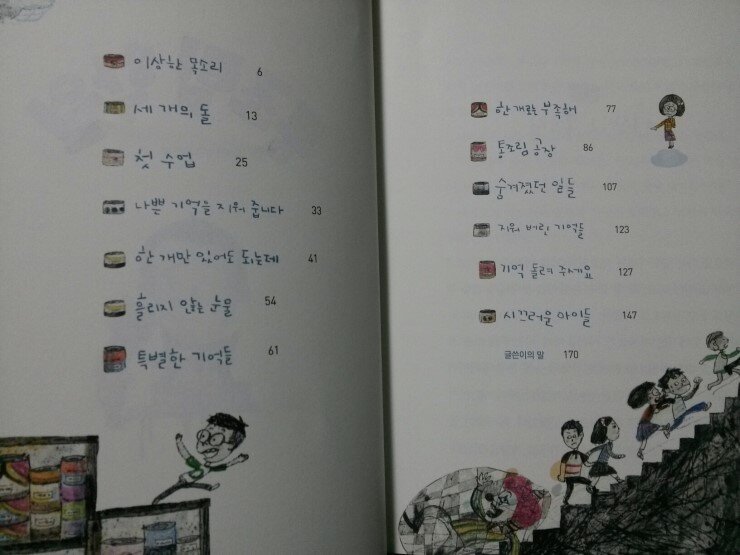 이상한 목소리 6
세 개의 돌 13
첫 수업 25
나쁜 기억을 지워 줍니다 33
한 개만 있어도 되는데 41
흘리지 않는 눈물 54
특별한 기억들 61
한 개로는 부족해 77
통조림 공장 86
숨겨졌던 일들 107
지워 버린 기억들 123
기억 돌려 주세요 127
시끄러운 아이들 147
글쓴이의 말 170